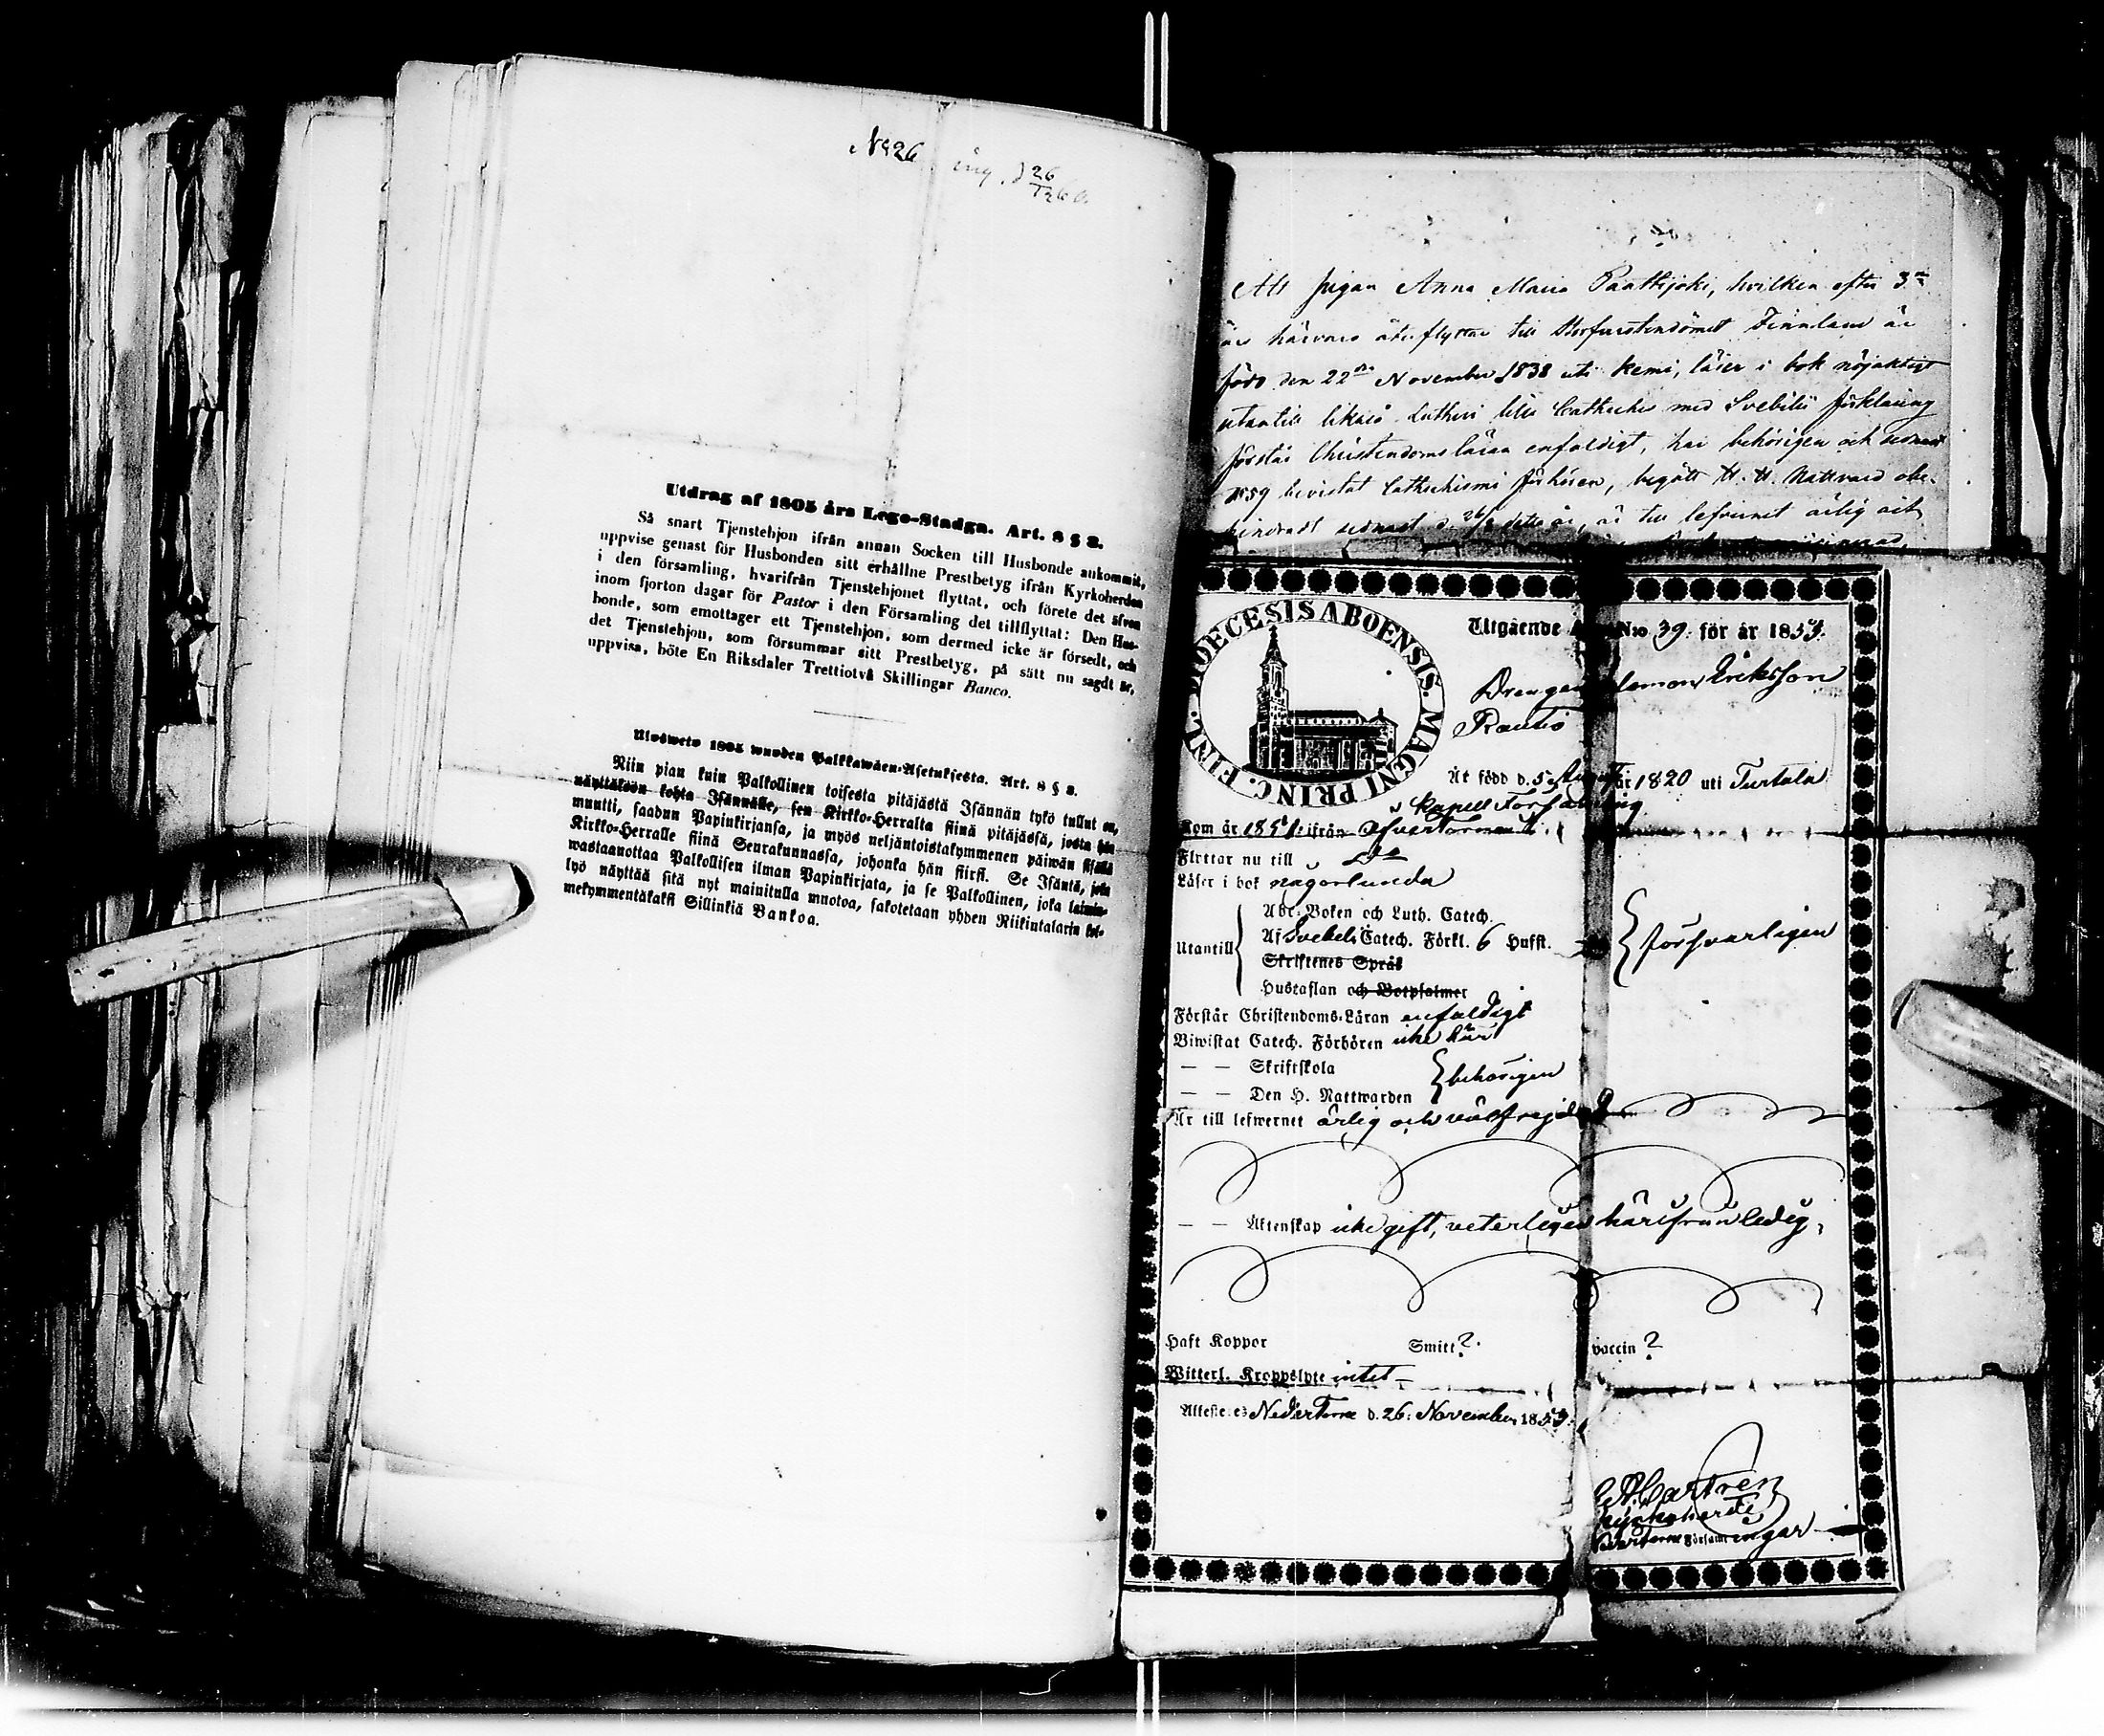 N:26 ing. d 26
Utdrag af 1805 års Lego-Stadga. Art. 8 § 2.
Så snart Tjenstehjon ifrån annan Socken till Husbonde ankommit,
uppvise genast för Husbonden sitt erhållne Prestbetyg ifrån Kyrkoherden
i den församling, hvarifrån Tjenstehjonet flyttat, och förete det äfven
inom fjorton dagar för Pastor i den Församling det tillflyttat: Den Hus-
bonde, som emottager ett Tjenstehjon, som dermed icke är försedt, och
det Tjenstehjon, som försummar sitt Prestbetyg, på sätt nu sagdt är,
uppvisa, böte En Riksdaler Trettiotvå Skillingar Banco.
Ulosweto 1805 wuoden Palkkawäen-Asetuksesta. Art. 8 § 2.
Niin pian kuin Palkollinen toisesta pitäjästä Isännän tykö tullut on,
näyttäköön kohta Isännälle, sen Kirkko-Herralta siinä pitäjässä, josta hän
muutti, saadun Papinkirjansa, ja myös neljäntoistakymmenen päiwän sisällä
Kirkko-Herralle siinä Seurakunnassa, johonka hän siirsi. Se Isäntä, joka
wastaanottaa Palkollisen ilman Papinkirjata, ja se Palkollinen, joka laimin-
lyö näyttää sitä nyt mainitulla muotoa, sakotetaan yhden Riikintalarin kol-
mekymmentäkaksi Sillinkiä Bankoa.
Att pigan Anna Maria Paattijoki, hvilken efter 3
års härvaro återflyttar till Storfurstendömet Finnland är
född den 22 November 1838 uti Kemi, läser i bok nöjaktigt
utantill likaså Lutheri lilla Catheches med Svebilii förklaring
förstår Christendomsläran enfaldigt, har behörigen och sednast
1859 bevistat Cathechismi förhören, begått H. H. Nattvard obe-
hindradt sednast d. 26/ detta år, är till lefvernet ärlig och
Utgående N:o 39. för år 1853.
Drengen Eriksson
Rautio
Är född d. 5 Augusti år 1820 uti Turtola
Kapell Församling
Kom år 1851 ifrån Öfvertorneå
Flyttar nu till
Läser i bok någorlunda
Abc-Boken och Luth. Catech.
Utantill Af Svebelii Catech. Förkl. 6 Hufst. försvarligen
Skriftenes Språk
Hustaflan och Botpsalmer
Förstår Christendoms-Läran enfaldigt
Biwistat Catech. Förhören icke här
— — Skriftskola behörigen
— — Den H. Nattwarden
Är till lefwernet ärlig och välfrejdad
— — Äktenskap icke gift, veterligen härifrån ledig,
Haft Koppor Smitt ? vaccin ?
Witterl. Kroppslyte intet —
Attesteres NederTorneå d. 26. November 1853.
Castrén
Kyrkoherde